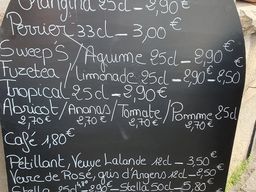 Orangina 25cl - 2,90€
Perrier 33cl - 3,00€
Sweep's / Agrume 25cl - 2,90€
Fuzetea / limonade 25cl - 2,90€ 2,50
Tropical 25cl - 2,90€
Abricot / Ananas / Tomate / Pomme 25cl
2,70€ 2,70€ 2,70€ 2,70€
Café 1,80€
Pétillant, Veuve Lalande 12cl - 3,50€
Verre de Rosé, gris d'Angers 12cl - 2,50
Stella 25cl 2,90€ - Stella 50cl - 5,80€